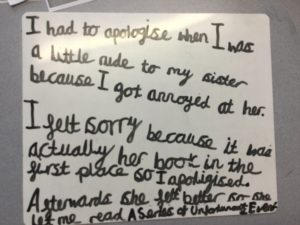 I had to apologise when I was
a little rude to my sister
because I got annoyed at her.
I felt sorry because it was
actually her book in the
first place so I apoligised.
Afterwards she felt better so she
let me read A Series of Unfortunate Events